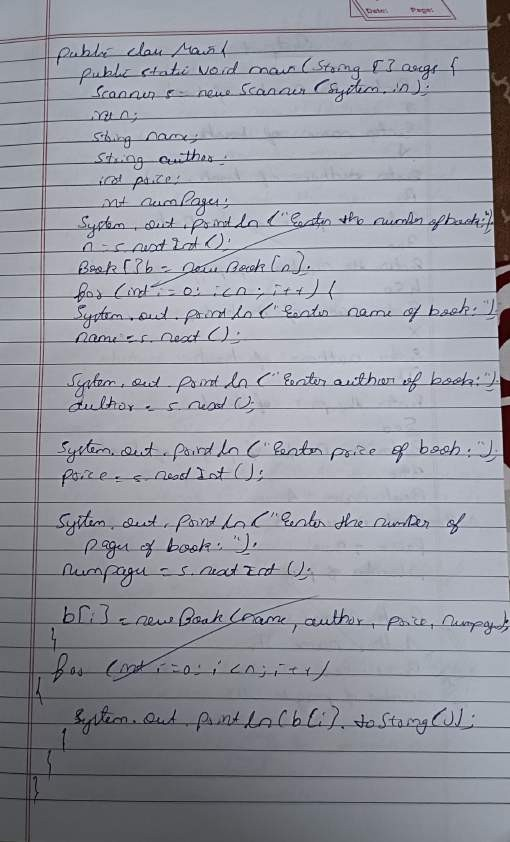 Date: Page:
public class Main {
public static void main (String [] args {
Scanner s = new Scanner (System. in);
int n;
String name;
String author;
int price;
int numPages;
System. out. println ("Enter the number of book:");
n = s. next Int ();
Book [] b = new Book [n];
for (int i = 0; i<n; i++) {
System. out. println ("Enter name of book: ");
name = s. next ();
System. out. println ("Enter author of book: ");
author = s. next ();
System. out. println ("Enter price of book: ");
price = s. next Int ();
System. out. println ("Enter the number of
pages of book: ");
numpages = s. next Int ();
b[i] = new Book (name, author, price, numpages);
}
for (int i=0; i<n; i++)
{
System. out. println (b[i]. toString ());
}
}
}